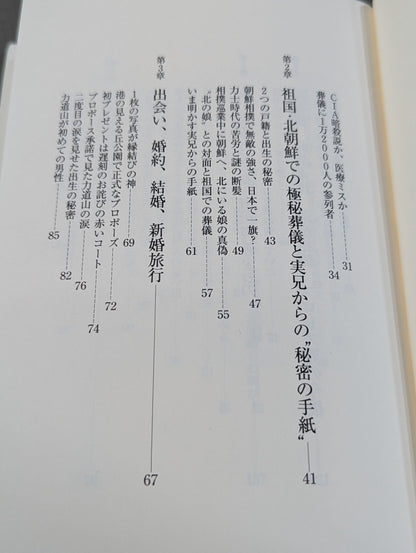 CIA謀殺説か、医療ミスか 31
葬儀に1万2000人の参列者 34
第2章 祖国・北朝鮮での極秘葬儀と実兄からの〝秘密の手紙〟 41
2つの戸籍と出生の秘密 43
朝鮮相撲で無敵の強さ、日本で一旗? 47
力士時代の苦労と謎の断髪 49
相撲巡業中に朝鮮へ・北にいる娘の真偽 55
〝北の娘〟との対面と祖国での葬儀 57
いま明かす実兄からの手紙 61
第3章 出会い、婚約、結婚、新婚旅行 67
1枚の写真が縁結びの神 69
港の見える丘公園で正式なプロポーズ 72
初プレゼントは遅刻のお詫びの赤いコート 74
プロポーズ承諾で見た力道山の涙 76
二度目の涙を見せた出生の秘密 82
力道山が初めての男性 85